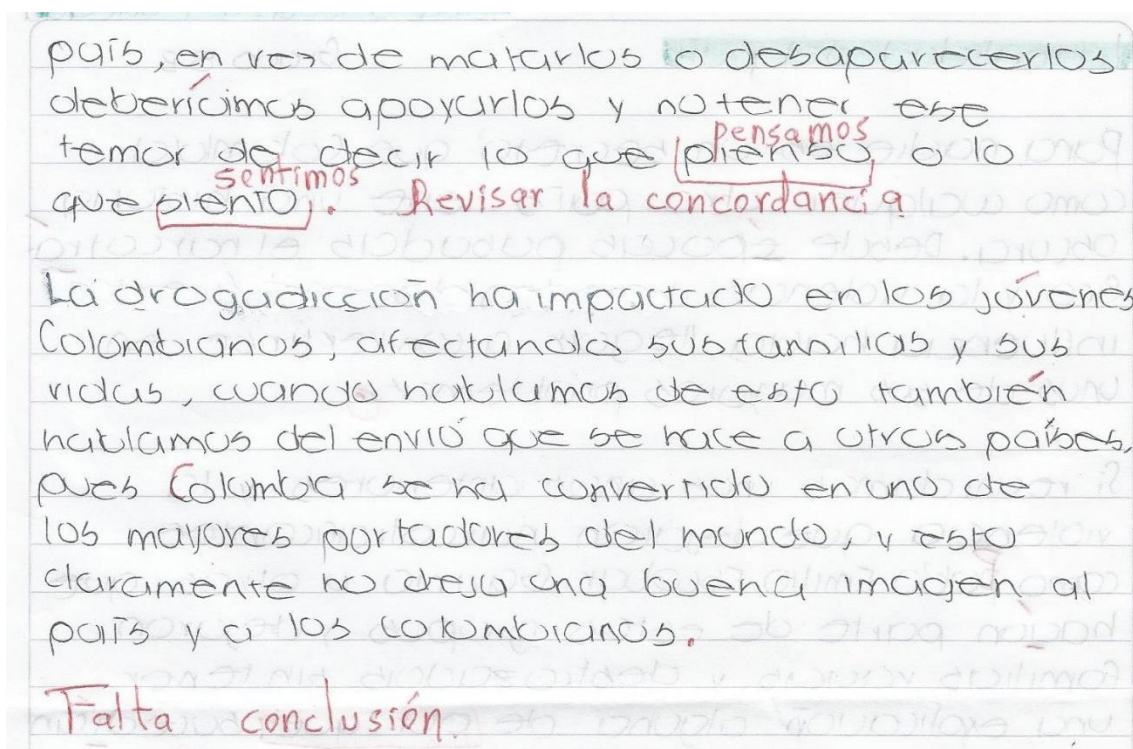 país, en vez de matarlos o desaparecerlos
deberíamos apoyarlos y no tener ese
pensamos
temor de decir lo que pienso o lo
sentimos
que siento. Revisar la concordancia
La drogadicción ha impactado en los jóvenes
Colombianos, afectando sus familias y sus
vidas, cuando hablamos de esto también
hablamos del envió que se hace a otros países,
pues Colombia se ha convertido en uno de
los mayores portadores del mundo, y esto
claramente no deja una buena imagen al
país y a los colombianos.
Falta conclusión.